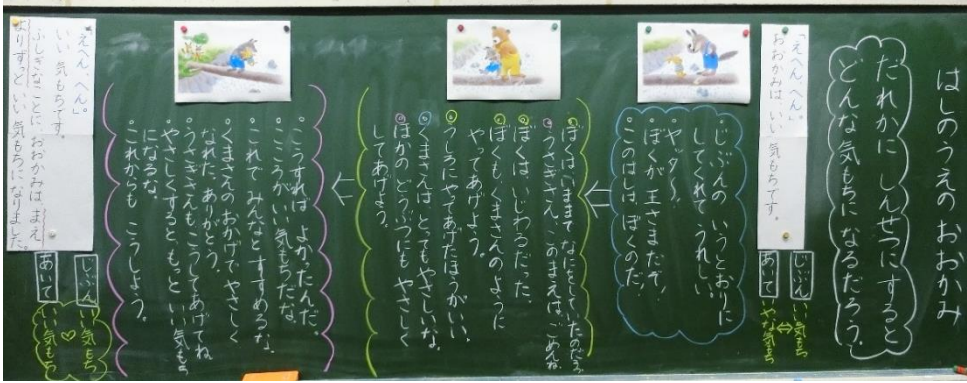 はしのうえの おおかみ
だれかに しんせつにすると
どんな気もちに なるだろう。
「えへん、へん。」
おおかみは いい 気もちです。
じぶん
いい気もち
⇔
あいて
いやな気もち
じぶんの いうとおりに
してくれて うれしい。
ヤッター。
ぼくが 王さまだぞ。
このはしは ぼくのだ。
ぼくは いままで なにをしていたのだろう。
うさぎさん、このまえは、ごめんね。
ぼくは いじわるだった。
ぼくも くまさんのように
やってあげよう。
うしろに やってあげたほうが いい。
くまさんは とってもやさしいな。
ほかの どうぶつにも やさしく
してあげよう。
こうすれば よかったんだ。
こころが いい気もちだな。
これで みんなとすすめるな。
くまさんの おかげで やさしく
なれた。ありがとう。
うさぎさんも こうしてあげてね。
やさしくすると、もっと いい 気もち
になるな。
これからも こうしよう。
「えへん、へん。」
いい 気もちです。
ふしぎなことに、おおかみは、まえ
よりずっと いい 気もちになりました。
じぶん
いい気もち
あいて
いい気もち